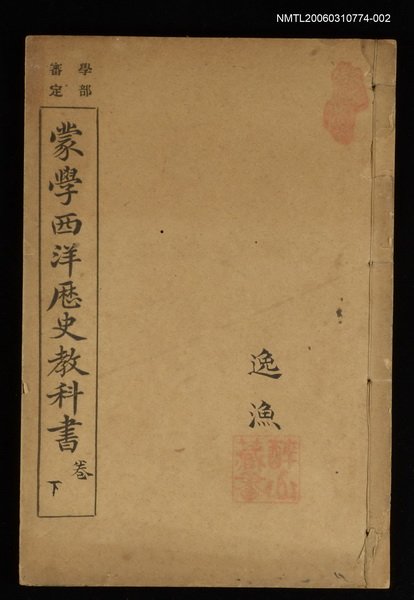 NMTL20060310774-002
學部
審定
蒙學西洋歷史教科書 卷下
逸漁
藏書